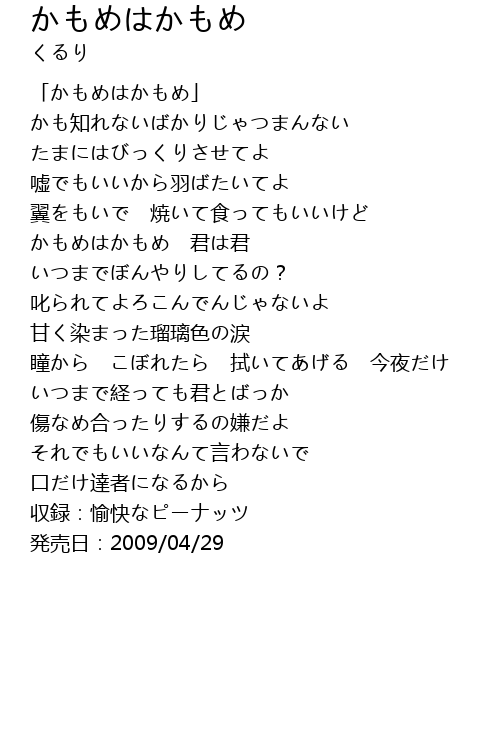 かもめはかもめ
くるり
「かもめはかもめ」
かも知れないばかりじゃつまんない
たまにはびっくりさせてよ
嘘でもいいから羽ばたいてよ
翼をもいで　焼いて食ってもいいけど
かもめはかもめ　君は君
いつまでぼんやりしてるの？
叱られてよろこんでんじゃないよ
甘く染まった瑠璃色の涙
瞳から　こぼれたら　拭いてあげる　今夜だけ
いつまで経っても君とばっか
傷なめ合ったりするの嫌だよ
それでもいいなんて言わないで
口だけ達者になるから
収録：愉快なピーナッツ
発売日：2009/04/29